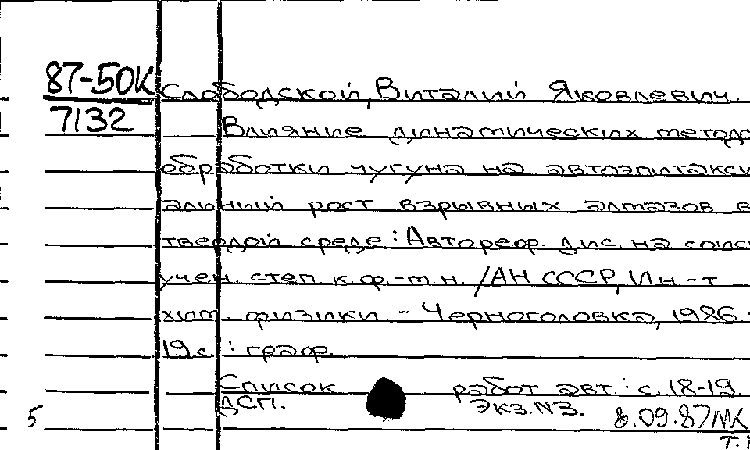 87-50К Слободской, Виталий Яковлевич.
7132 Влияние динамических методо
обработки чугуна на автоэпитакси
альный рост взрывных алмазов в
твердой среде: Автореф. дис. на соиск
учен. степ. к.ф.-м.н. /АН СССР, Ин-т
хим. физики - Черноголовка, 1986.
19 с.: граф.
Список работ авт.: с. 18-19.
ДСП. Экз. N3.
5 8.09.87МК